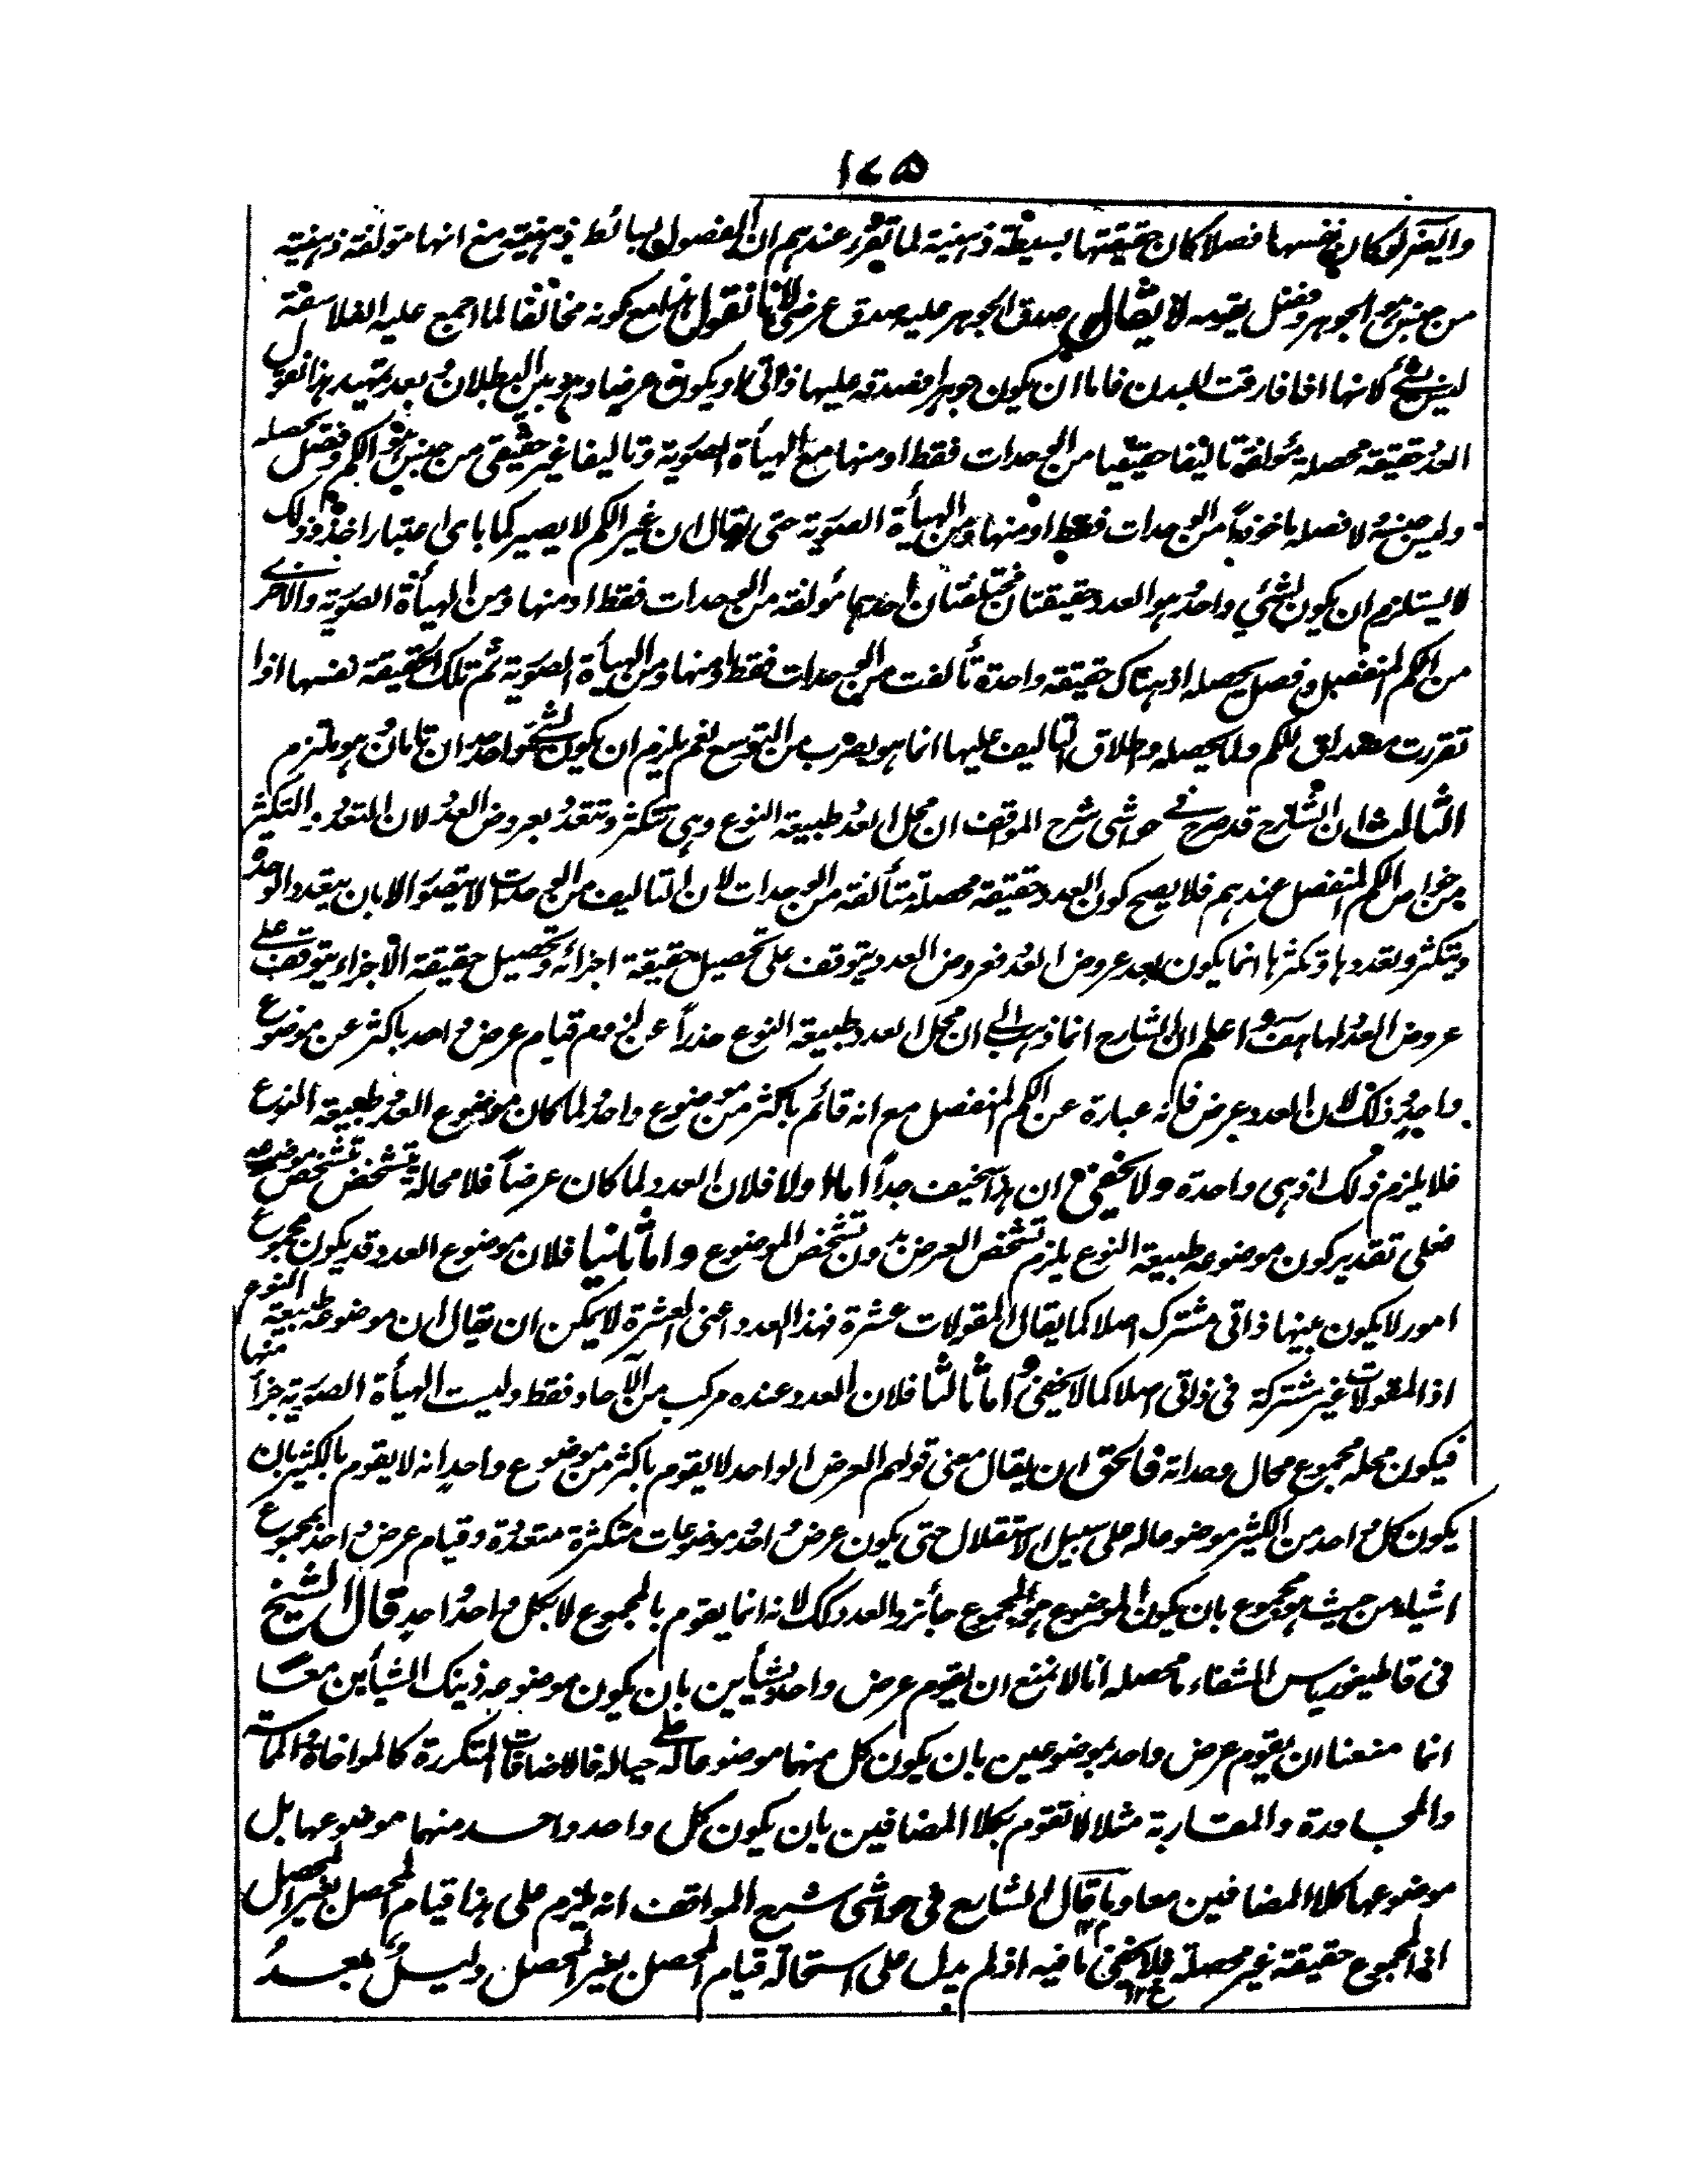 ١٧٥
وايضا لو كان نفسها فصلا كان حقيقتها بسيطة ذهنية لما تقرر عندهم ان الفصول بسائط ذهنية مع انها مؤلفة ذهنية
من جنس هو الجوهر وفصل يقومه لا يقال صدق الجوهر عليه صدق عرضي لانا نقول هذا مع كونه مخالفا لما اجمع عليه الفلاسفة
ليس بشئ لانها اذا فارقت البدن فاما ان يكون جوهرا فصدقه عليها ذاتي او يكون عرضا وهو بين البطلان وبعد تمهيد هذا نقول
العدد حقيقة محصلة مؤلفة تاليفا حقيقيا من الوحدات فقط او منها مع الهيأة الصورية وتاليفا غير حقيقي من جنس هو الكم وفصل يحصله
وليس جنسه ولا فصله ماخوذا من الوحدات فقط او منها ومن الهيأة الصورية حتى يقال ان غير الكم لا يصير كما باى اعتبار اخذ وذلك
لا يستلزم ان يكون لشئ واحد هو العدد حقيقتان مختلفتان احدهما مؤلفة من الوحدات فقط او منها ومن الهيأة الصورية والاخرى
من الكم المنفصل وفصل يحصله اذ هناك حقيقة واحدة تألفت من الوحدات فقط او منها ومن الهيأة الصورية ثم تلك الحقيقة نفسها اذا
تقررت مصداق للكم ولما يحصله واطلاق التاليف عليها انما هو بضرب من التوسع نعم يلزم ان يكون لشئ واحد حدان تامان وهو ملتزم
الثالث ان الشارح قد صرح في حواشى شرح المواقف ان محل العدد طبيعة النوع وهى تتكثر وتتعدد بعروض العدد لان التعدد والتكثر
من خواص الكم المنفصل عندهم فلا يصح كون العدد حقيقة محصلة متألفة من الوحدات لان التاليف من الوحدات لا يتصور الا بان يتعدد الوحدة
ويتكثر وتعددها وتكثرها انما يكون بعد عروض العدد فعروض العدد يتوقف على تحصيل حقيقة اجزائه وتحصيل حقيقة الاجزاء يتوقف على
عروض العدد لها هف واعلم ان الشارح انما ذهب الى ان محل العدد طبيعة النوع حذراً عن لزوم قيام عرض واحد باكثر عن موضوع
واحد وذلك لان العدد عرض فانه عبارة عن الكم المنفصل مع انه قائم باكثر من موضوع واحد ولما كان موضوع العدد طبيعة النوع
فلا يلزم ذلك اذ هى واحدة ولا يخفى ان هذا سخيف جداً اما اولا فلان العدد لما كان عرضاً فلا محالة يتشخص بتشخص موضوعه
فعلى تقدير كون موضوعه طبيعة النوع يلزم تشخص العرض بدون تشخص الموضوع واما ثانيا فلان موضوع العدد قد يكون مجموع
امور لا يكون بينها ذاتى مشترك اصلا كما يقال المقولات عشرة فهذا العدد اعنى العشرة لا يمكن ان يقال ان موضوعه طبيعة النوع
اذ المقولات غير مشتركة فى ذاتى اصلا كما لا يخفى واما ثالثا فلان العدد عنده مركب من الآحاد فقط وليست الهيأة الصورية جزأ منها
فيكون محله مجموع محال وحداته فالحق ان يقال معنى قولهم العرض الواحد لا يقوم باكثر من موضوع واحد انه لا يقوم بالكثير بان
يكون كل واحد من الكثير موضوعا له على سبيل الاستقلال حتى يكون عرض واحد موضوعات متكثرة متعددة وقيام عرض واحد بمجموع
اشياء من حيث هو مجموع بان يكون الموضوع هو المجموع جائز والعدد كذلك لانه انما يقوم بالمجموع لا بكل واحد واحد قال الشيخ
فى قاطيغورياس الشفاء ما محصله انا لا نمنع ان يقوم عرض واحد بشيأين بان يكون موضوعه ذينك الشيأين معا
انما منعنا ان يقوم عرض واحد بموضوعين بان يكون كل منهما موضوعا له على حياله فالاضافات المتكررة كالمواخاة والمماسة
والمجاورة والمقاربة مثلا لا تقوم بكلا المضافين بان يكون كل واحد واحد منهما موضوعها بل
موضوعها كلا المضافين معا وما قال الشارح فى حواشى شرح المواقف انه يلزم على هذا قيام المحصل بغير المحصل
اذ المجموع حقيقة غير محصلة فلا يخفى ما فيه اذ لم يدل على استحالة قيام المحصل بغير المحصل دليل بعد